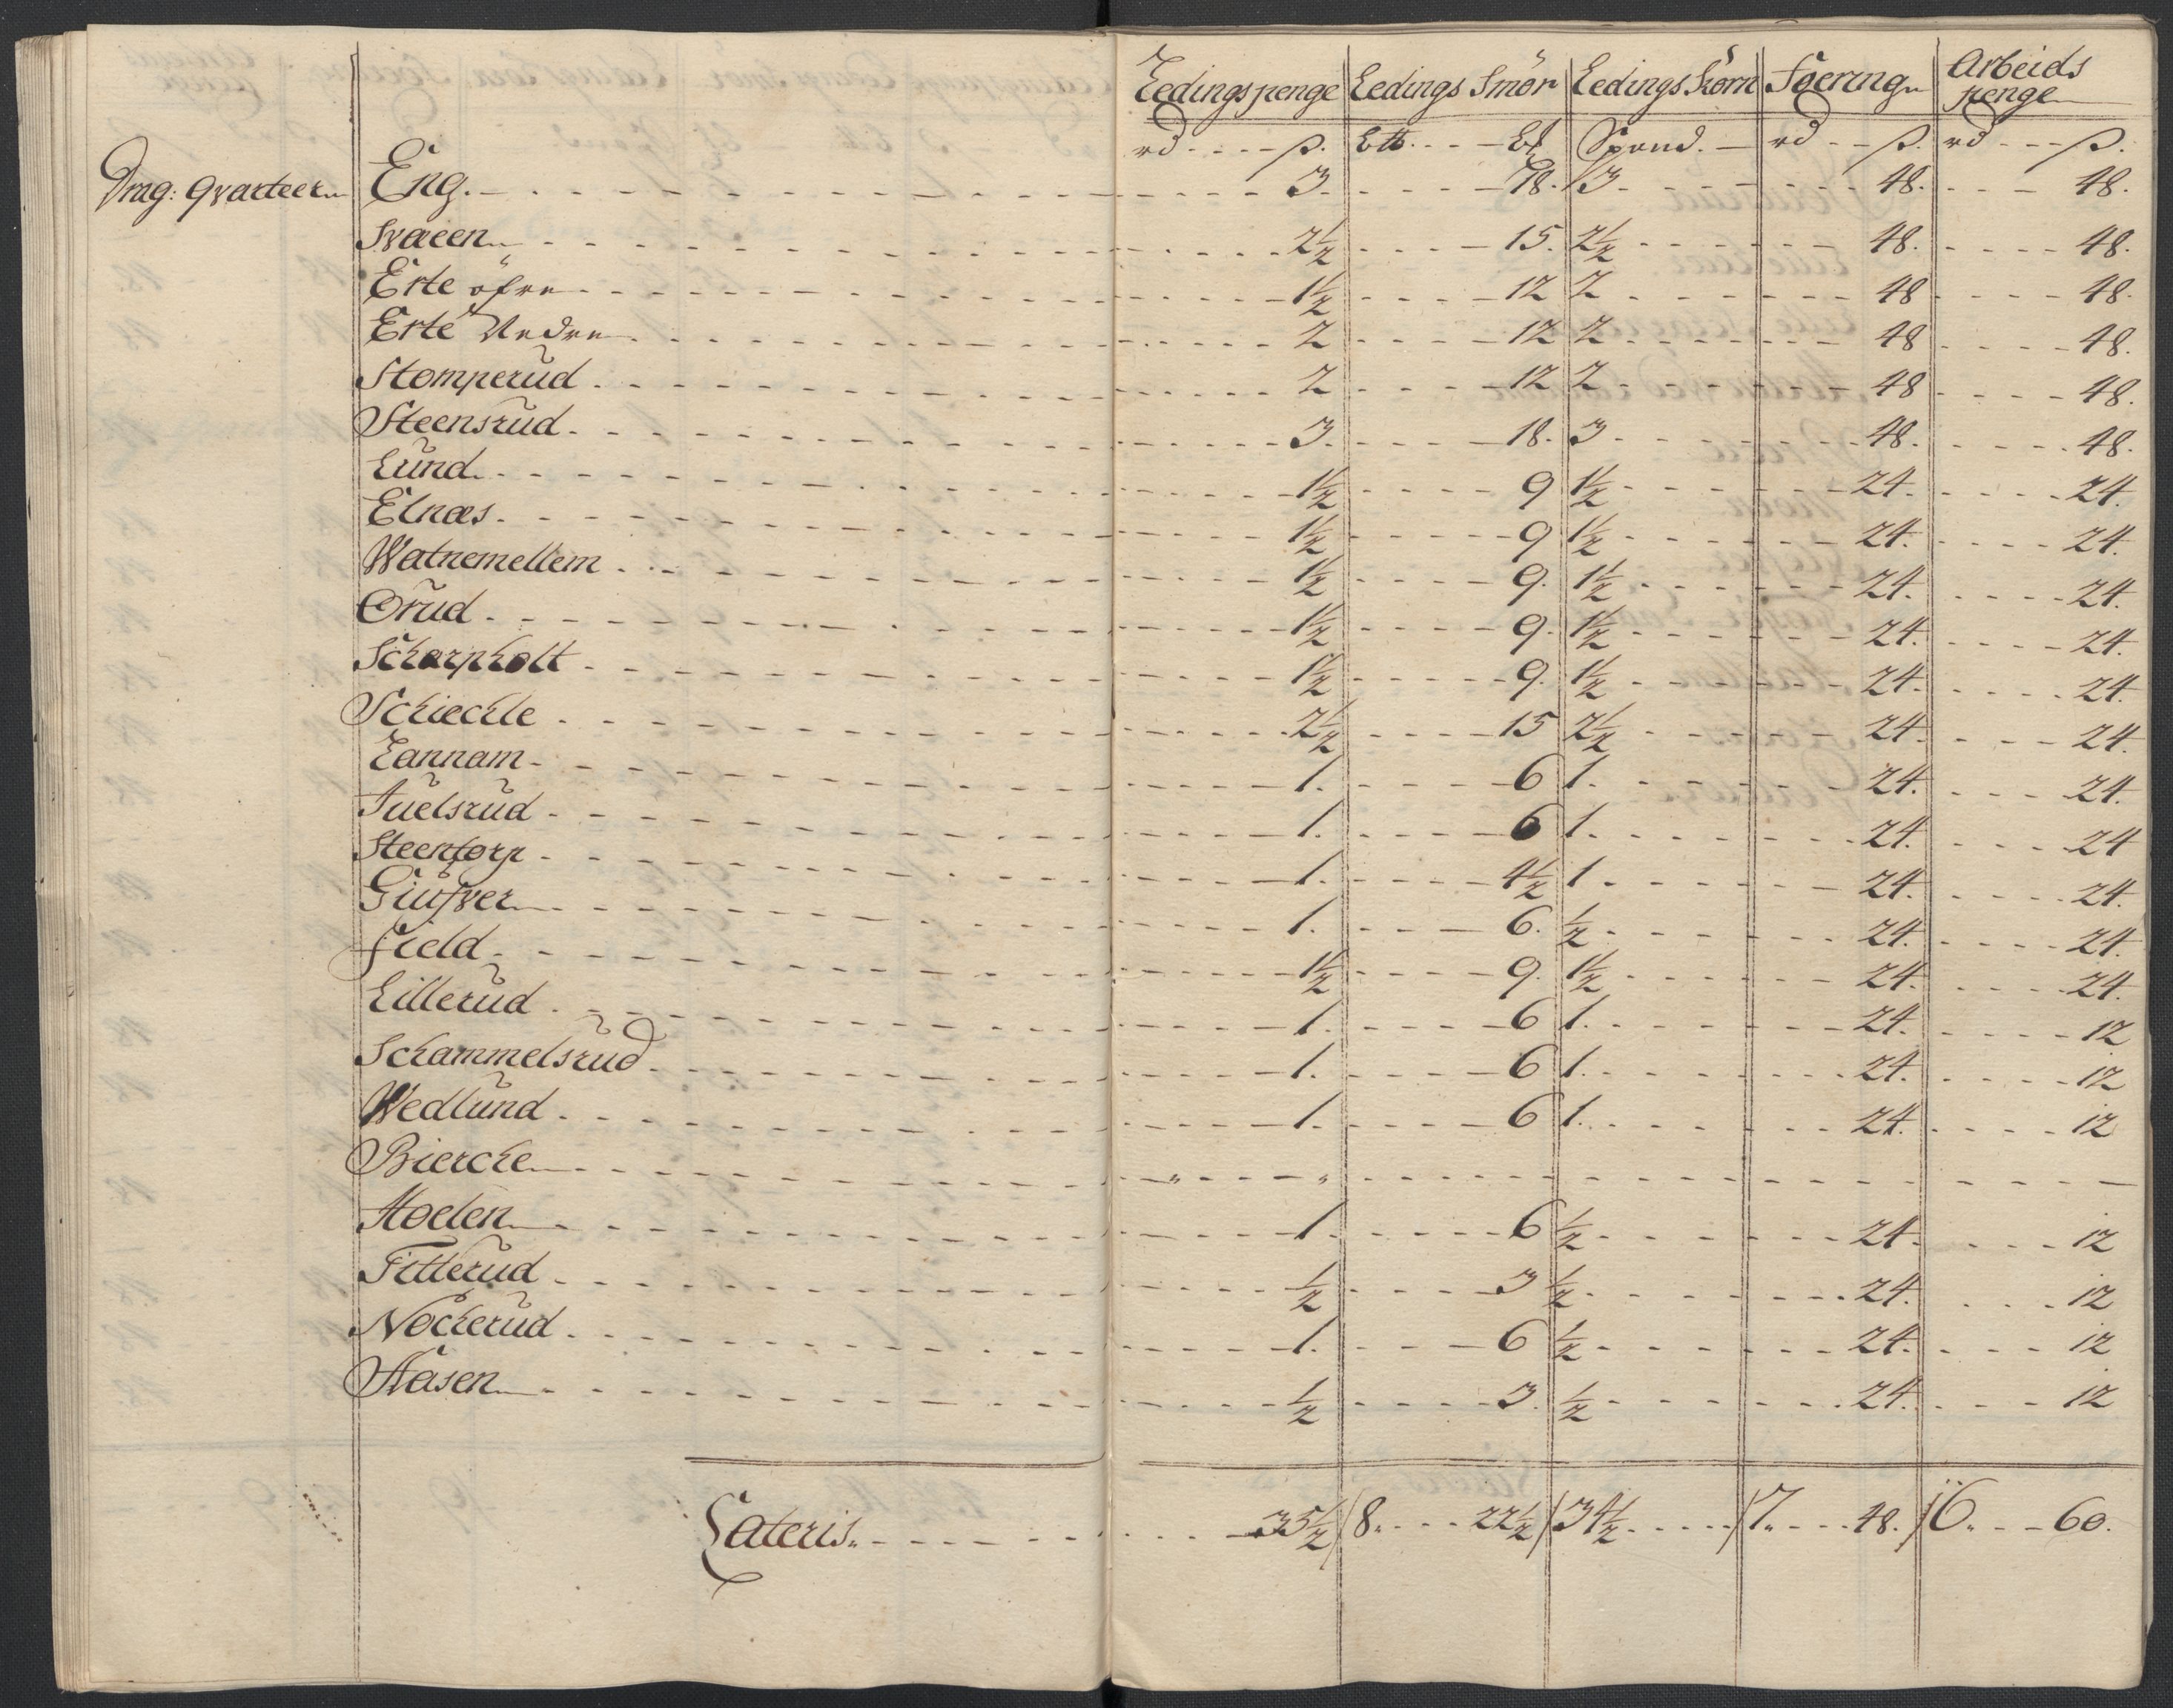 Leedingspenge | Leedings Smör | Leedings Korn | Foering | Arbeids penge
rd ß. | L℔ | Spand. | rd ß. | rd ß.
Drag: Qvarteer Eng. 3. | 18. | 3 | 48. | 48.
Svaeen 2½ | 15. | 2½ | 48. | 48.
Erte öfre 1½ | 12 | 2 | 48 | 48.
Erte Nedre 2 | 12 | 2 | 48 | 48.
Stomperud 2 | 12 | 2 | 48 | 48.
Steensrud 3. | 18. | 3 | 48. | 48.
Lund 1½ | 9 | 1½ | 24. | 24.
Elnæs 1½ | 9 | 1½ | 24. | 24.
Watnemellem 1½ | 9. | 1½ | 24. | 24.
Örud 1½ | 9. | 1½ | 24. | 24.
Scharpholt 1½ | 9. | 1½ | 24. | 24.
Schiechle 2½ | 15 | 2½ | 24. | 24.
Lannam 1. | 6 | 1. | 24. | 24.
Juelsrud 1. | 6 | 1. | 24. | 24
Steentorp 1. | 4½ | 1 | 24. | 24.
Giufver 1. | 6. | ½ | 24. | 24.
Field 1½ | 9. | 1½ | 24. | 24.
Lillerud 1. | 6 | 1. | 24. | 12
Schammelsrud 1. | 6 | 1. | 24. | 12
Wedlund 1. | 6 | 1. | 24. | 12
Biercke
Moelen 1. | 6 | ½ | 24. | 12
Titterud ½ | 3 | ½ | 24. | 12
Nöckerud 1. | 6 | ½ | 24. | 12
Aasen ½ | 3. | ½ | 24. | 12
Lateris. 35½ | 8. 22½ | 34½ | 7. 48. | 6. 60.